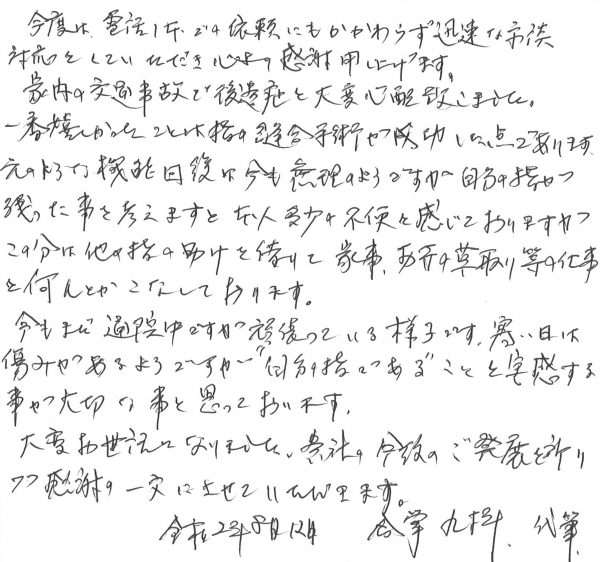 今度は、電話1本での依頼にもかかわらず迅速な
対応をしていただき心より感謝申し上げます。
家内の交通事故で後遺症と大変心配致しました。
一番嬉しかったことは指の縫合手術が成功した点であります
元のような機能回復は今も無理のようですが自分の指が
残った事を考えますと本人多少の不便を感じておりますが
この分は他の指の助けを借りて家事、お弁の草取り等の仕事
を何んとかこなしております。
今もまだ通院中ですが頑張っている様子です。寒い日は
傷みがあるようですが"自分の指である"ことを実感する
事が大切な事と思っております。
大変お世話になりました。貴社の今後のご発展を祈り
つつ感謝の一文にさせていただきます。
令和2年8月12日 代筆